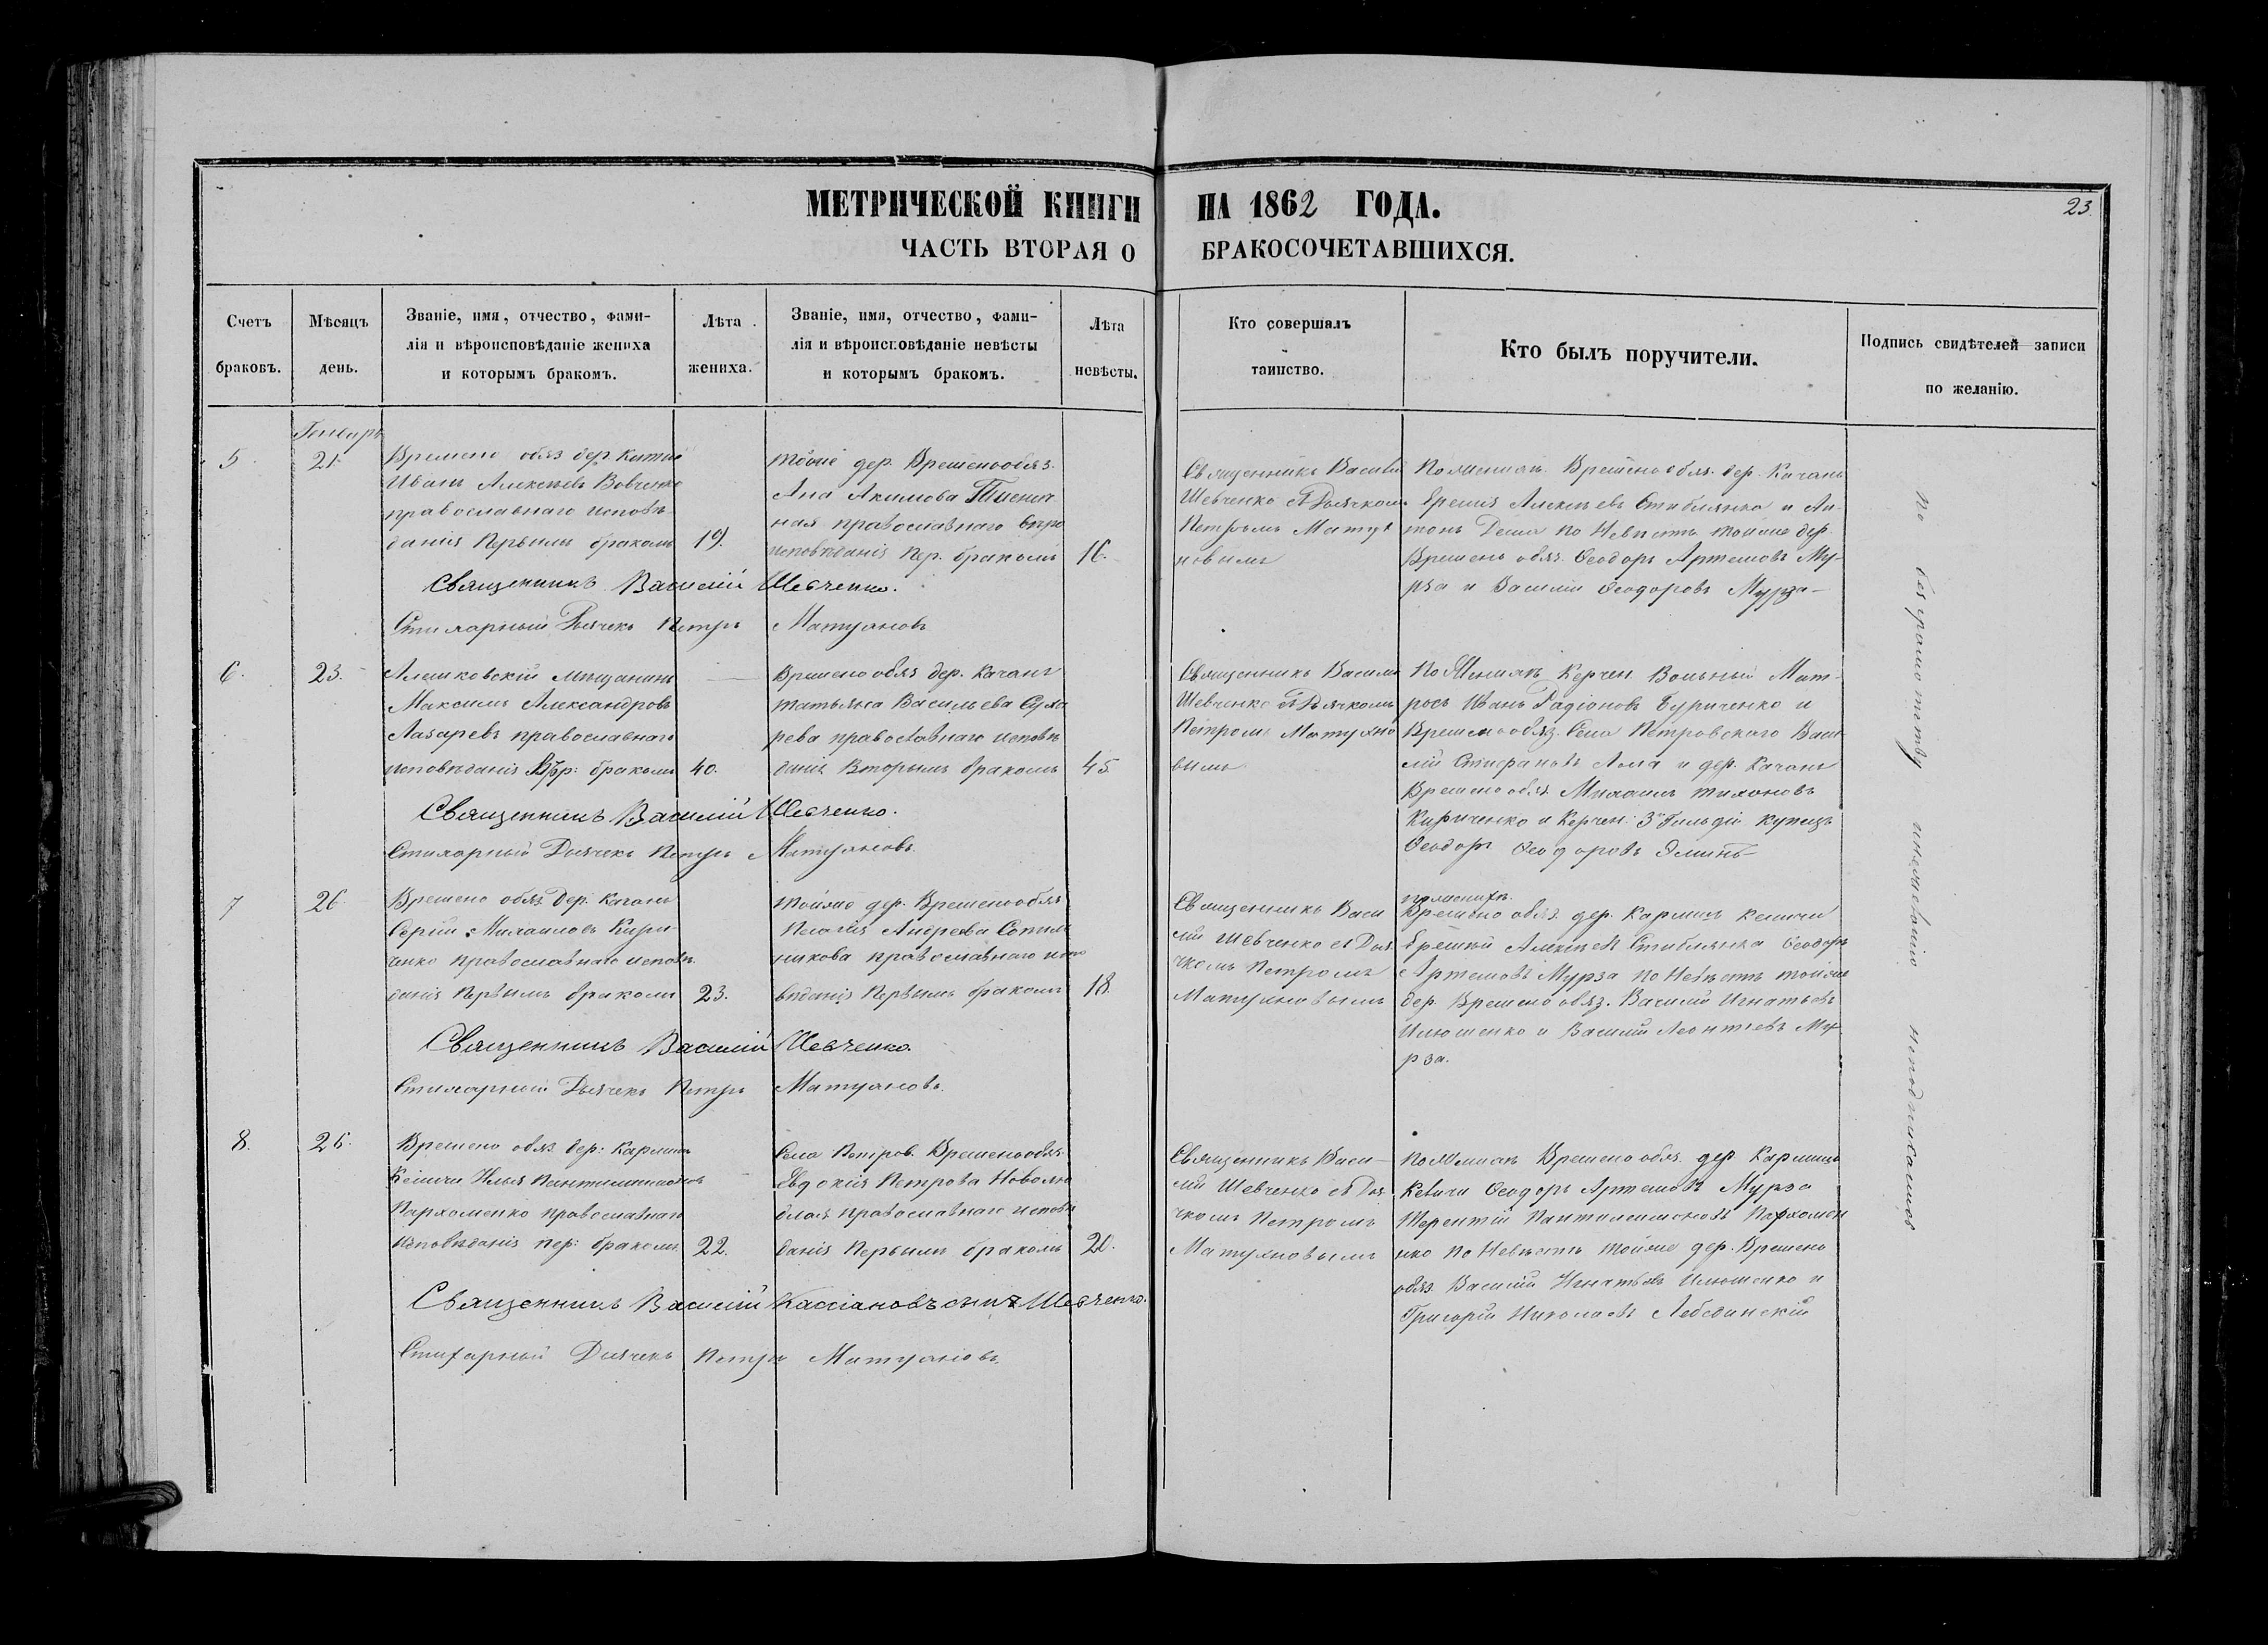 МЕТРИЧЕСКОЙ КНИГИ НА 1862 ГОДА.
23.
ЧАСТЬ ВТОРАЯ О БРАКОСОЧЕТАВШИХСЯ.
Счетъ
браковъ.
Мѣсяцъ
день.
Званіе, имя, отчество, фами-
лія и вѣроисповѣданіе жениха
и которымъ бракомъ.
Лѣта
жениха.
Званіе, имя, отчество, фами-
лія и вѣроисповѣданіе невѣсты
и которымъ бракомъ.
Лѣта
невѣсты.
Кто совершалъ
таинство.
Кто былъ поручители.
Подпись свидѣтелей записи
по желанію.
Генварь
5.
21.
Времено обяз дер.
Иванъ Алексѣевъ Вовченко
православнаго исповѣ
данія Первымъ бракомъ
19.
тойже дер. Временообяз.
Ана Акимова
ная православнаго вѣро
исповѣданія пер. бракомъ
16.
Священникъ Василій
Шевченко съ Дьячкомъ
Петромъ Матуя
новымъ
По женихѣ. Временообяз. дер. Качанъ
Еремія Алексѣевъ Стеблянко и Ан-
тонъ по Невѣстѣ тойже дер.
Времено обяз. Ѳеодоръ Артемовъ Му-
рза и Василій Ѳеодоровъ Мурза
Священникъ Василій Шевченко.
Стихарный Дьячекъ Петръ Матуяновъ
6.
23.
Алешковскій мѣщанинъ
Максимъ Александровъ
Лазаревъ православнаго
исповѣданія бракомъ
40.
Временообяз дер. Качанъ
татьяна Васильева Суха
рева православнаго исповѣ
данія Вторымъ бракомъ
45.
Священникъ Василій
Шевченко съ Дьячкомъ
Петромъ Матуяно
вымъ
По Женихѣ Керчен. Вольный Мат-
росъ Иванъ Радіоновъ Буриченко и
Временообяз. Села Петровскаго Васи
лій Стефановъ Лола и дер. Качанъ
Времено обяз. Михаилъ тихоновъ
Кириченко и Керчен: 3й Гильдіи купецъ
Ѳеодоръ Ѳеодоровъ Эминъ
Священникъ Василій Шевченко.
Стихарный Дьячекъ Петръ Матуяновъ
7
26.
Времено обяз. Дер. Качанъ
Сергій Михаиловъ Кири-
ченко православнаго исповѣ.
данія Первымъ бракомъ
23.
тойже дер. Временообяз
Пелагія Андреева Сотни
никова православнаго испо
вѣданія Первымъ бракомъ
18.
Священникъ Васи
лій Шевченко съ Дья
чкомъ Петромъ
Матуяновымъ
По женихѣ.
Времено обяз. дер. Кармишъ келичи
Еремей Алексѣевъ Стеблянка Ѳеодоръ
Артемовъ Мурза по Невѣстѣ тойже
дер. Времено обяз. Василій Игнатьевъ
Илюшенко и Василій Леонтіевъ Му
рза.
Священникъ Василій Шевченко.
Стихарный Дьячекъ Петръ Матуяновъ.
8.
26.
Времено обяз. дер: Кармишъ
Келичи Илья Пантилимоновъ
Пархоменко православнаго
исповѣданія пер: бракомъ
22.
Села Петров. Временообяз.
Евдокія Петрова
православнаго исповѣ
данія Первымъ бракомъ
20.
Священникъ Васи-
лій Шевченко съ Дья
чкомъ Петромъ
Матуяновымъ
По Женихѣ Времено обяз. дер Кармишъ
Келичи Ѳеодоръ Артемовъ Мурза
Терентій Пантилеимоновъ Пархомен
ко по Невѣстѣ тойже дер. Времено
обяз. Василій Игнатьевъ Илюшенко и
Григорій Николаевъ Лебединскій
Священникъ Василій Кассіановъ сынъ Шевченко.
Стихарный Дьячекъ Петръ Матуяновъ.
По безграмотству и нежеланію неподписались